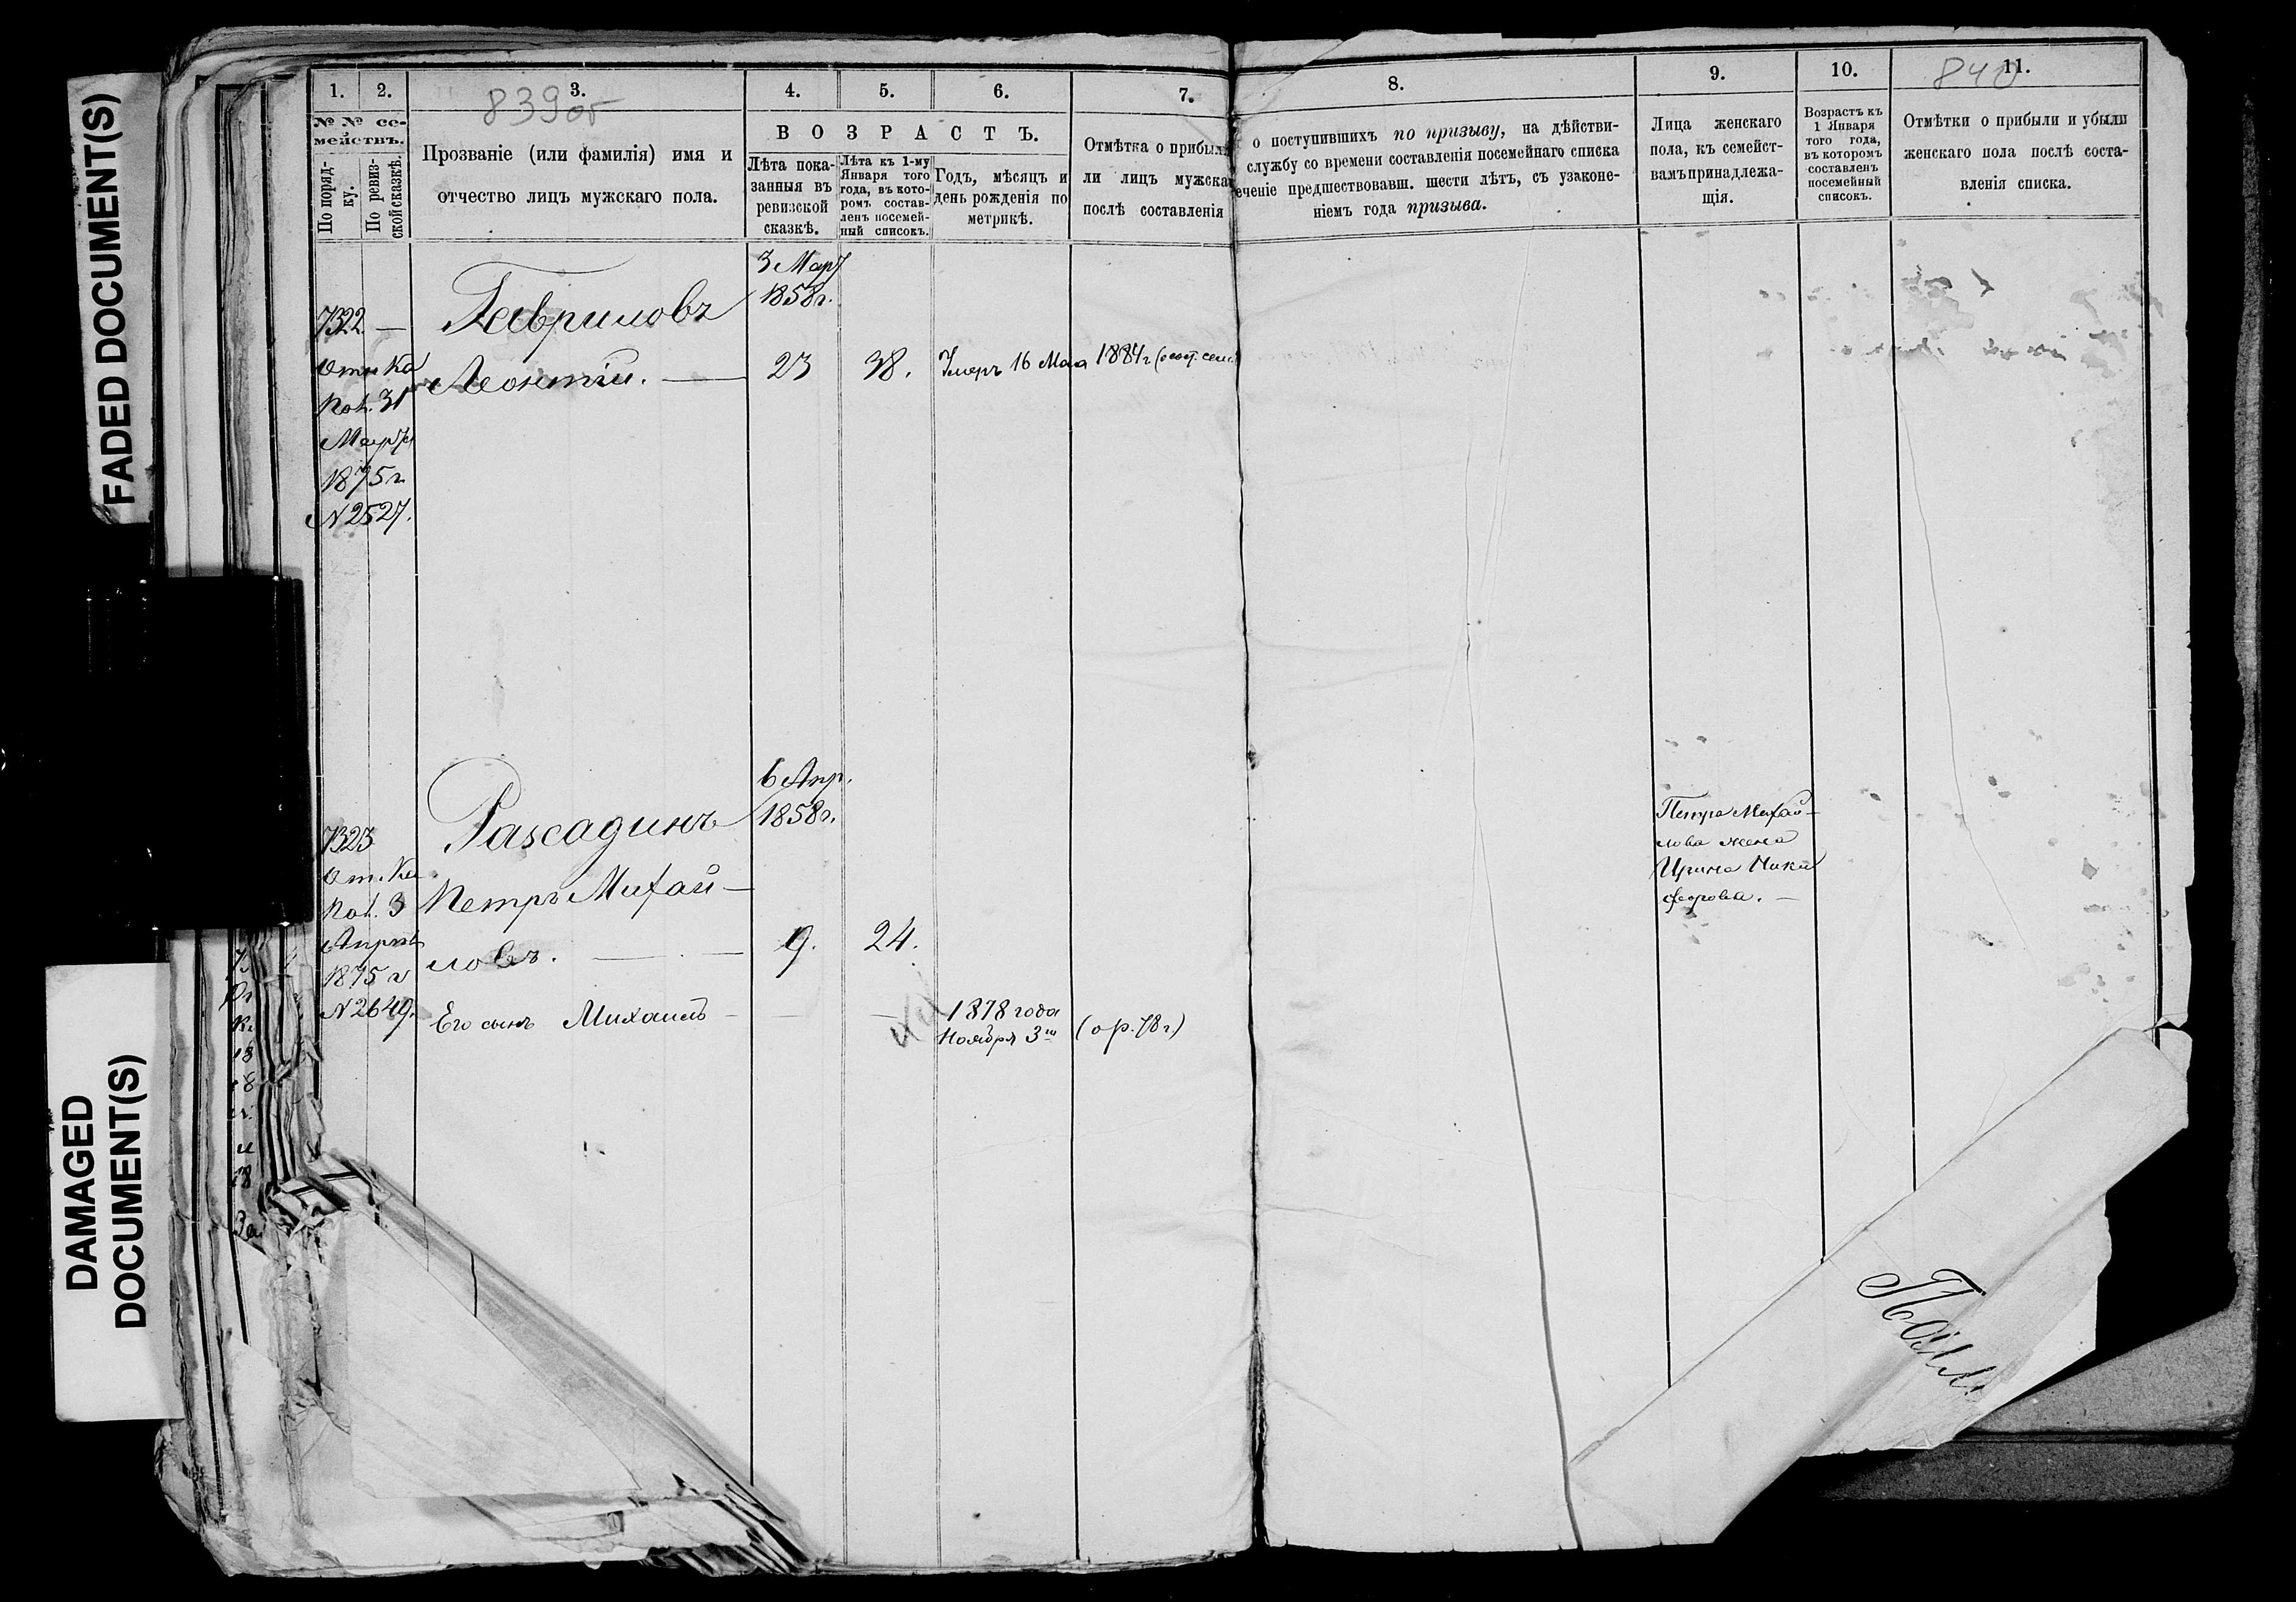 FADED DOCUMENT(S)
DAMAGED
DOCUMENT(S)
839об
840
1. 2. 3. 4. 5. 6. 7. 8. 9. 10. 11.
№ № се-
мействъ.
По поряд-
ку.
По ревиз-
ской сказкѣ.
Прозваніе (или фамилія) имя и
отчество лицъ мужскаго пола.
ВОЗРАСТЪ.
Лѣта пока-
занныя въ
ревизской
сказкѣ.
Лѣта къ 1-му
Января того
года, въ кото-
ромъ состав-
ленъ посемей-
ный списокъ.
Годъ, мѣсяцъ и
день рожденія по
метрикѣ.
Отмѣтка о прибыли
ли лицъ мужска
послѣ составленія
о поступившихъ по призыву, на дѣйстви-
службу со времени составленія посемейнаго списка
еченіе предшествовавш. шести лѣтъ, съ узаконе-
ніемъ года призыва.
Лица женскаго
пола, къ семейст-
вамъ принадлежа-
щія.
Возрастъ къ
1 Января
того года,
въ которомъ
составленъ
посемейный
списокъ.
Отмѣтки о прибыли и убыли
женскаго пола послѣ соста-
вленія списка.
3 Март
1858г.
7322 — Гавриловъ
Отн. Ка
Пол. 31
Марта
1875 г
N 2527.
Леонтій. — 23 38. Умеръ 16 Мая 1884 г
6 Апр.
1858г.
7323 Разсадинъ
От. Ка
Пол. 3
Апрѣл
1875 г
N 2649.
Петръ Михай-
ловъ. — 9. 24.
Его сынъ Михаилъ — 1878 года
Ноября 3го (ор. 78 г.)
Петра Михай-
лова жена
Ирина Ники
форова. —